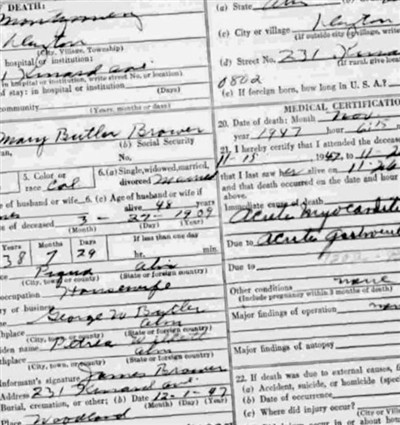 DEATH:
Montgomery
Dayton
(City, Village, Township)
hospital or institution:
Kinard ave.
in hospital or institution, write street No. or location)
d stay: in hospital or institution
(Days)
community
(Years, months or days)
Mary Butler Brower
an,
(b) Social Security
No.
5. Color or
race Col
6.(a) Single, widowed, married,
divorced Married
of husband or wife
6. (c) Age of husband or wife if
alive 48 years
of deceased 3 - 27 - 1909
(Month) (Day) (Year)
Years Months Days If less than one day
38 7 29 hr. min.
Piqua Ohio
(City, town, or county) (State or foreign country)
occupation Housewife
ry or business
George W Butler
Ohio
hplace (City, town, or county) (State or foreign country)
iden name
Ohio
rthplace
(City, town, or county) (State or foreign country)
Informant's signature James Brower
Address 231 Kinard ave.
Burial, cremation, or other; (b) Date 12-1-47
(Month) (Day) (Year)
Place Woodland
(a) State Ohio
(c) City or village Dayton
(If outside city or village, write
(d) Street No. 231 Kinard
(If rural, give loca
0802
(e) If foreign born, how long in U. S. A.?
MEDICAL CERTIFICATI
20. Date of death: Month Nov
year 1947 hour 6:15
21. I hereby certify that I attended the decease
11-15 1947, to 11-2
that I last saw her alive on 11-26
and that death occurred on the date and hour
above.
Immediate cause of death
Acute myocarditis
Due to Acute Gastroenter
Due to
Other conditions none
(Include pregnancy within 3 months of death)
Major findings of operation
Major findings of autopsy
22. If death was due to external causes, f
(a) Accident, suicide, or homicide (speci
(b) Date of occurrence
(c) Where did injury occur?
(City or Villag